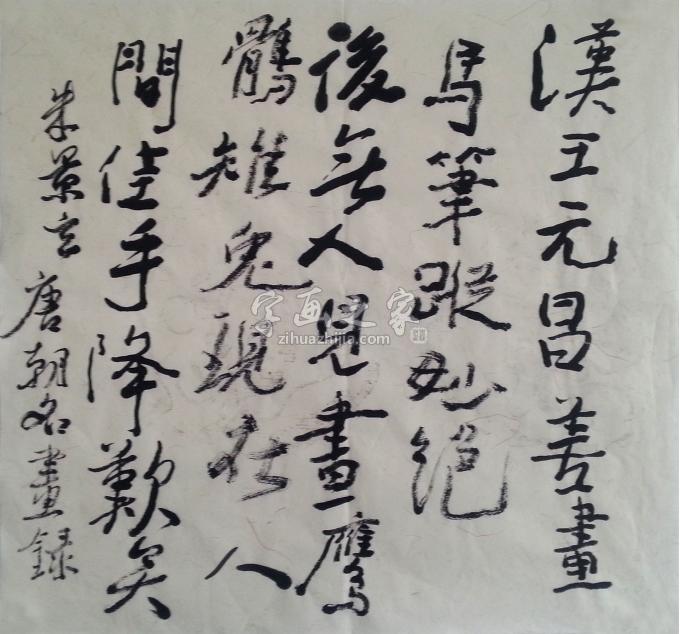 漢王元昌善畫
馬筆蹤妙絕
後無人見畫鷹
鶻雉兔現在人
間佳手降歎矣
朱景玄唐朝名畫錄
字画之家
zihuazhijia.com